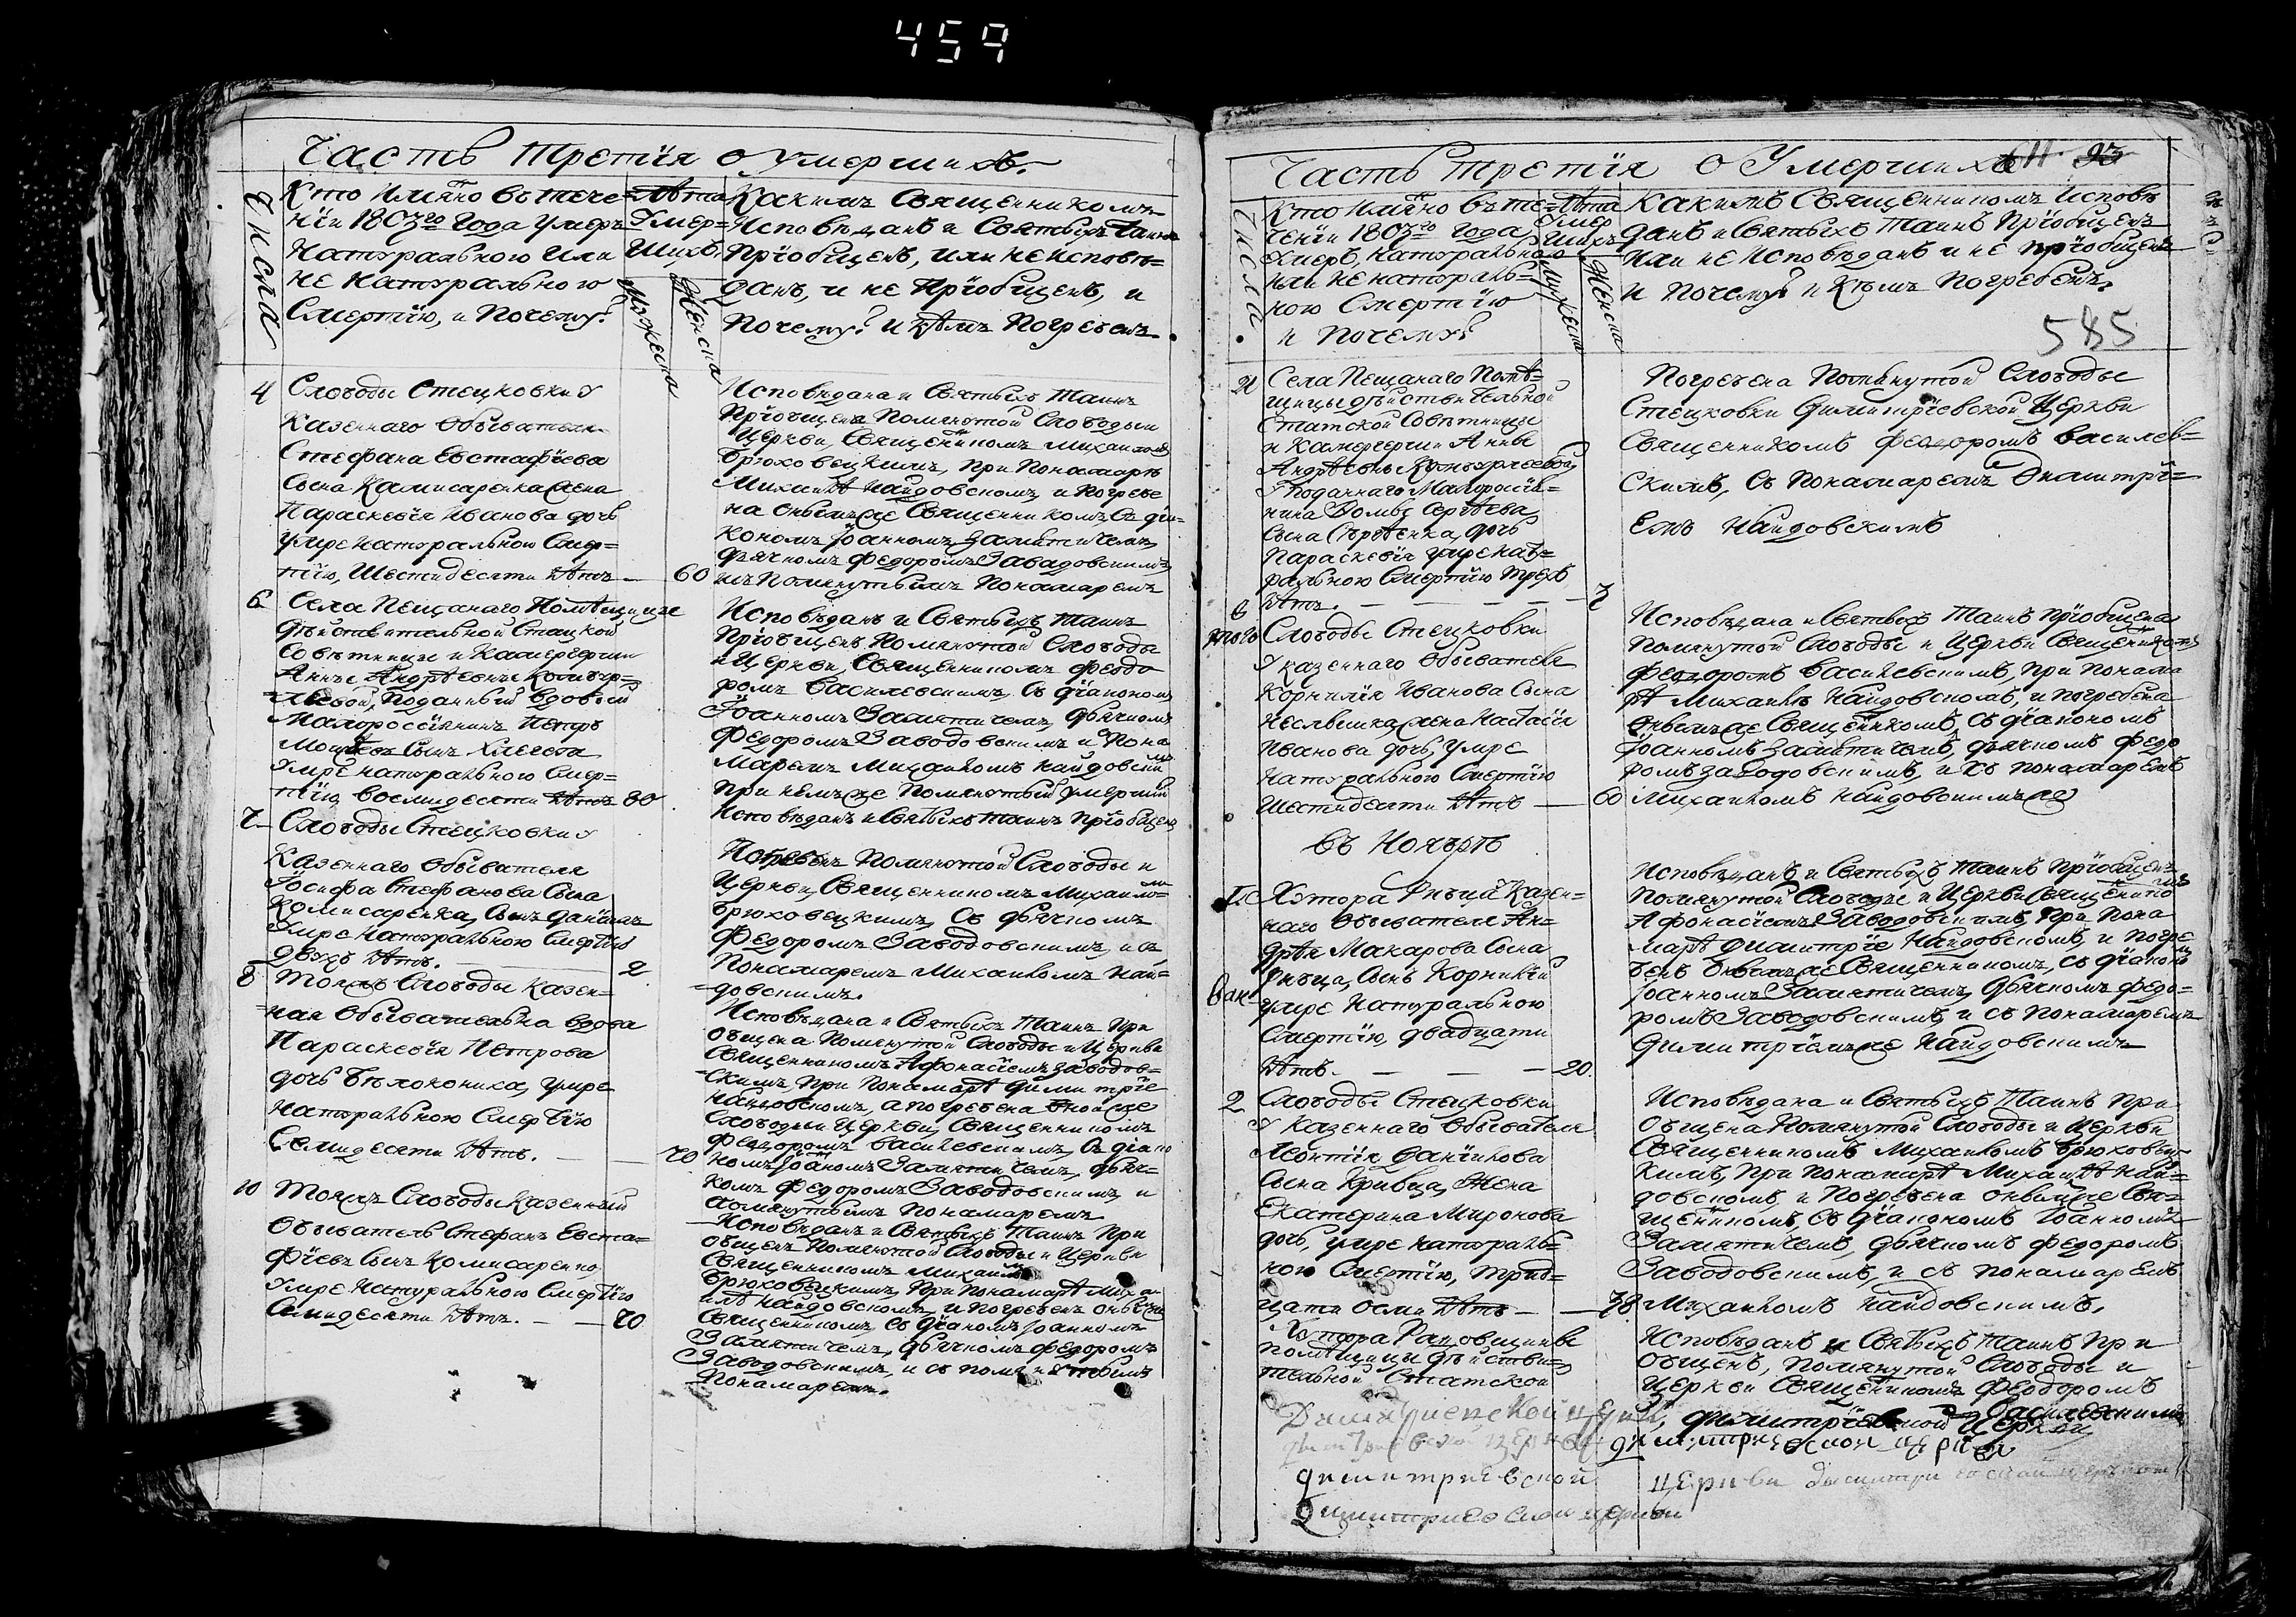 459
Часть третія о умершихъ.
Числа
Кто Имянно въ тече=
ніи 1803го года умеръ
Натуральною или
не натуральною
Смертію, и Почему?
Лѣта
Умер=
шихъ
Мужеска
Женска
Какимъ Священникомъ
Исповѣданъ и Святыхъ таинъ
Пріобщенъ, или не исповѣ=
данъ, и не Пріобщенъ, и
Почему? и кѣмъ Погребенъ.
4
Слободы Стецковки у
Казеннаго Обывателя
Стефана Евстафіева
Сына Камисаренка жена
Параскевія Иванова дочь
умре натуральною Смер=
тію, Шестидесяти лѣтъ —
60
Исповѣдана и Святыхъ Таинъ
Пріобщена Помянутой Слободы и
Церкви, Священникомъ Михаиломъ
Брюховецкимъ, при Понамарѣ
Михаилѣ Найдовскомъ, и погребе
на онымъже Священникомъ, съ діа=
кономъ Іоанномъ Замятичемъ,
дьячкомъ Федоромъ Завадовскимъ,
и съ Помянутымъ Понамаремъ
6
Села Пещанаго Помѣщицы
дѣйствительной Стацкой
Совѣтницы и Камергерши
Анны Андрѣевны
Подданный вдовый
Малороссіянинъ Петръ
Сынъ
Умре натуральною Смер=
тію, восмидесяти лѣтъ
80
Исповѣданъ и Святыхъ Таинъ
Пріобщенъ, Помянутой Слободы
и Церкви, Священникомъ Феодо
ромъ Василевскимъ, съ діакономъ
Іоанномъ Замятичемъ, дьячкомъ
Федоромъ Заводовскимъ и Пона
маремъ Михаиломъ Найдовскимъ
При немъже Помянутый умерший
Исповѣданъ и Святыхъ Таинъ Пріобщенъ
7
Слободы Стецковки у
Казеннаго Обывателя
Іосифа Стефанова Сына
Комисаренка, Сынъ Даніилъ
Умре Натуральною Смертію
двухъ лѣтъ. —
2
Погребенъ Помянутой Слободы и
Церкви, Священникомъ Михаиломъ
Брюховецкимъ, Съ дьячкомъ
Федоромъ Заводовскимъ, и съ
Понамаремъ Михаиломъ Най=
довскимъ.
8
Тояжъ Слободы Казен=
ная Обывателька вдова
Параскевія Петрова
дочь Бѣлоконика, умре
Натуральною Смертію
Семидесяти лѣтъ. — —
70
Исповѣдана и Святыхъ Таинъ При
общена Помянутой Слободы и Церкви
Священникомъ Афонасіемъ Заводов=
скимъ, при Понамарѣ Димитріе
Найдовскомъ, а погребена оной же
Слободы и Церкви, Священникомъ
Федоромъ Василевскимъ, Съ діако
номъ Іоаномъ Замятичемъ, дьяч=
комъ Федоромъ Заводовскимъ, и
Помянутымъ Понамаремъ
10
Тояжъ Слободы Казенный
Обыватель Стефанъ Евста=
фіевъ Сынъ Комисаренко,
Умре Натуральною Смертію
Семидесяти лѣтъ. — —
70
Исповѣданъ и Святыхъ Таинъ При
общенъ Помянутой Слободы и Церкви
Священникомъ Михаиломъ
Брюховецкимъ, при Понамарѣ Миха
илѣ Найдовскомъ, и погребенъ онымже
Священникомъ, съ діакономъ Іоанномъ
Замятичемъ, дьячкомъ Федоромъ
Заводовскимъ, и съ помянутымъ
Понамаремъ.
Часть третія о Умершихъ
23
Числа
Кто имянно въ те=
ченіи 1803го года
Умеръ, натуральною
или не натураль=
ною Смертію
и Почему?
Лѣта
Умер
шихъ
Мужеска
Женска
Какимъ Священникомъ Исповѣ
данъ и Святыхъ Таинъ Пріобщенъ
или не Исповѣданъ и не Пріобщенъ
и Почему? и Кѣмъ Погребенъ.
585
Села Пещанаго Помѣ=
щицы дѣйствительной
Статской Совѣтницы
и Камергерши Анны
Андрѣевны
У поданнаго Малороссія=
нина
Сына дочь
Параскевія умре нату=
ральною Смертію трехъ
лѣтъ. — — — —
3
Погребена Помянутой Слободы
Стецковки Димитріевской Церкви
Священникомъ Феодоромъ Василев=
скимъ, Съ Понамаремъ Димитрі=
емъ Найдовскимъ
6
того
Слободы Стецковки
У казеннаго Обывателя
Корнилія Иванова Сына
жена Настасія
Иванова дочь, умре
Натуральною Смертію
Шестидесяти лѣтъ —
60
Исповѣдана и Святыхъ Таинъ Пріобщена
Помянутой Слободы и Церкви Священникомъ
Феодоромъ Василевскимъ, при Понама
рѣ Михаилѣ Найдовскомъ, и погребена
Онымъже Священникомъ, съ діакономъ
Іоанномъ Замятичемъ, дьячкомъ Федо
ромъ Заводовскимъ, и съ понамаремъ
Михаиломъ Найдовскимъже
въ Ноябрѣ
Хутора Казен=
наго Обывателя Ан=
дрѣя Макарова Сына
Сынъ Корнилій
умре Натуральною
Смертію, двадцати
лѣтъ. — — —
20
Исповѣданъ и Святыхъ Таинъ Пріобщенъ
Помянутой Слободы и Церкви Священникомъ
Афонасіемъ Заводовскимъ, при Пона
марѣ Димитріе Найдовскомъ, и погре
бенъ Онымъже Священникомъ, съ діакономъ
Іоанномъ Замятичемъ, дьячкомъ Федо=
ромъ Заводовскимъ, и съ Понамаремъ
Димитріемъже Найдовскимъ
2
Слободы Стецковки
У казеннаго Обывателя
Леонтія Даніилова
Сына Кривца, Жена
Екатерина Миронова
дочь, умре натураль=
ною Смертію, трид=
цати осми лѣтъ —
38
Исповѣдана и Святыхъ Таинъ При
общена Помянутой Слободы и Церкви
Священникомъ Михаиломъ Брюховец
кимъ, при Понамарѣ Михаилѣ Най=
довскомъ, и Погребена онымже Свя=
щенникомъ, съ діакономъ Іоанномъ
Замятичемъ, дьячкомъ Федоромъ
Заводовскимъ, и съ понамаремъ
Михаиломъ Найдовскимъ.
Хутора
помѣщицы дѣйстви=
тельной Статской
Исповѣданъ и Святыхъ Таинъ При
общенъ, Помянутой Слободы и
Церкви Священникомъ Феодоромъ
Василевскимъ
Димитріевской Церкви
димитриевской церкви
димитриевской
димитриевской церкви